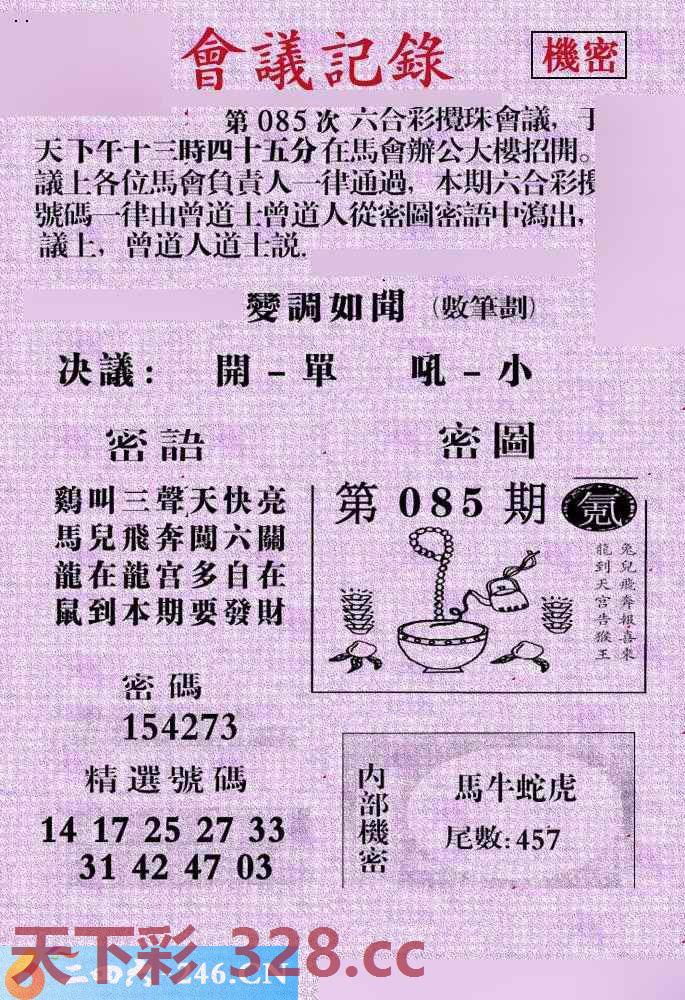 會議記錄
機密
第 085 次 六合彩攪珠會議，于
天下午十三時四十五分在馬會辦公大樓招開。
議上各位馬會負責人一律通過，本期六合彩攪
號碼一律由曾道士曾道人從密圖密語中瀉出，
議上，曾道人道士説．
變調如聞（數筆劃）
决議：　開－單　吼－小
密語
鷄叫三聲天快亮
馬兒飛奔闖六關
龍在龍宫多自在
鼠到本期要發財
密圖
第 085 期
兔兒飛奔報喜來
龍到天宫告猴王
密碼
154273
精選號碼
14 17 25 27 33
31 42 47 03
内部機密
馬牛蛇虎
尾數：457
天下彩 328.cc
246.CN